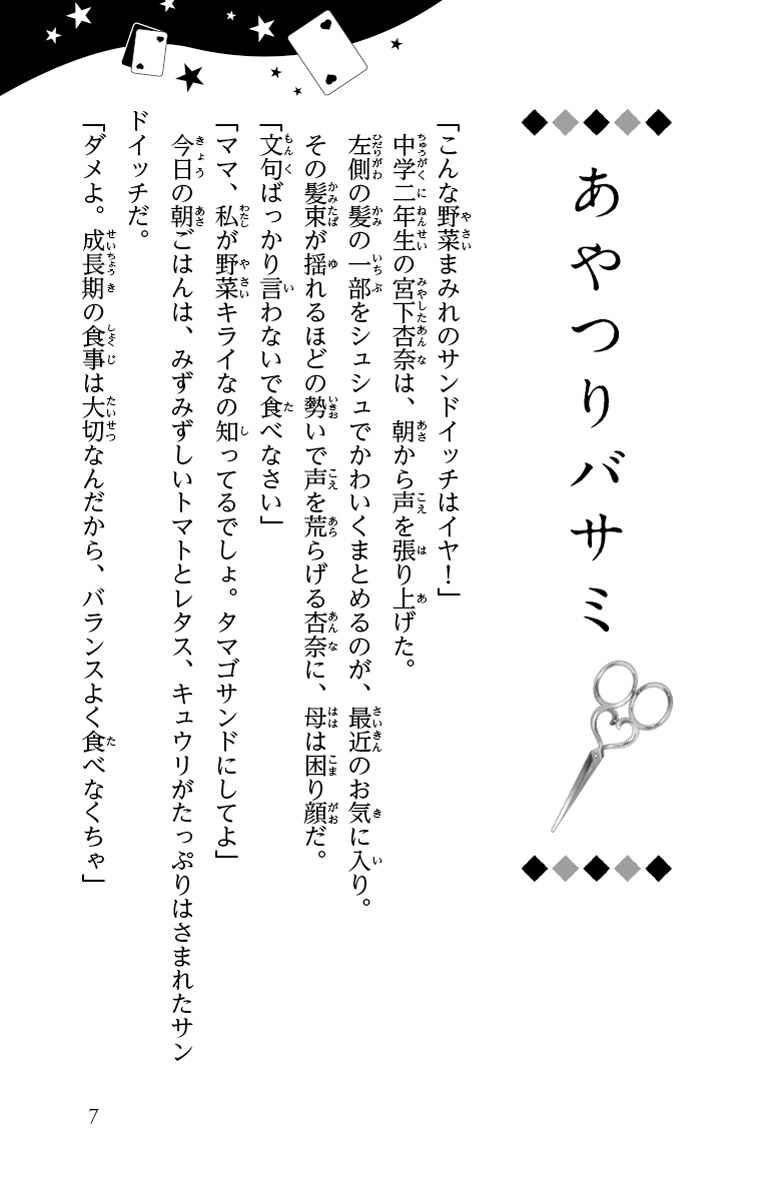 あやつりバサミ
「こんな野菜まみれのサンドイッチはイヤ！」
中学二年生の宮下杏奈は、朝から声を張り上げた。
左側の髪の一部をシュシュでかわいくまとめるのが、最近のお気に入り。
その髪束が揺れるほどの勢いで声を荒らげる杏奈に、母は困り顔だ。
「文句ばっかり言わないで食べなさい」
「ママ、私が野菜キライなの知ってるでしょ。タマゴサンドにしてよ」
今日の朝ごはんは、みずみずしいトマトとレタス、キュウリがたっぷりはさまれたサン
ドイッチだ。
「ダメよ。成長期の食事は大切なんだから、バランスよく食べなくちゃ」
7